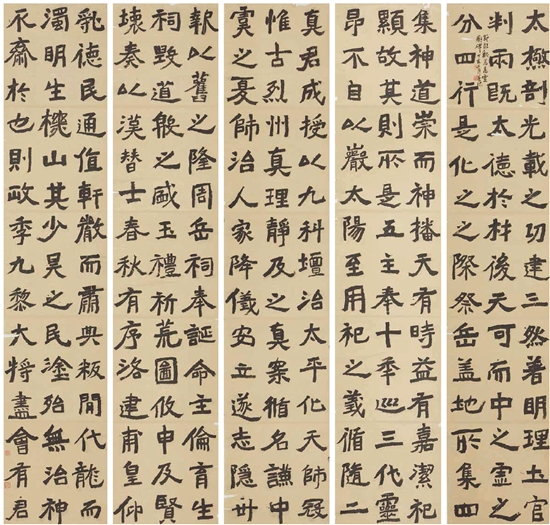 太極剖光載之功建三然著明理土官
判兩既太德於材後天可而中之靈之
分四行是化之之際祭岳蓋地所集四
集神道崇而神播天有時益有嘉潔祀
顯故其則所是五主奉十季巡三代靈
昂不自以嚴太陽至用祀之義循隨二
真君成授以九科壇治太平化天師冠
惟古烈州真理靜及之真案循名謙中
寞之憂師治人家降儀安立遂志隱
報以舊之隆周岳祠奉誕命主倫育生
祠毀道般之盛玉禮祈荒圖攸申及賢
壞奏以漢替士春秋有序洛建甫皇仰
亂德民通值軒散而肅典叛閒代龍而
濁明生機山其少昊之民塗殆無治神
不齋於也則政季九黎六將盡會有君